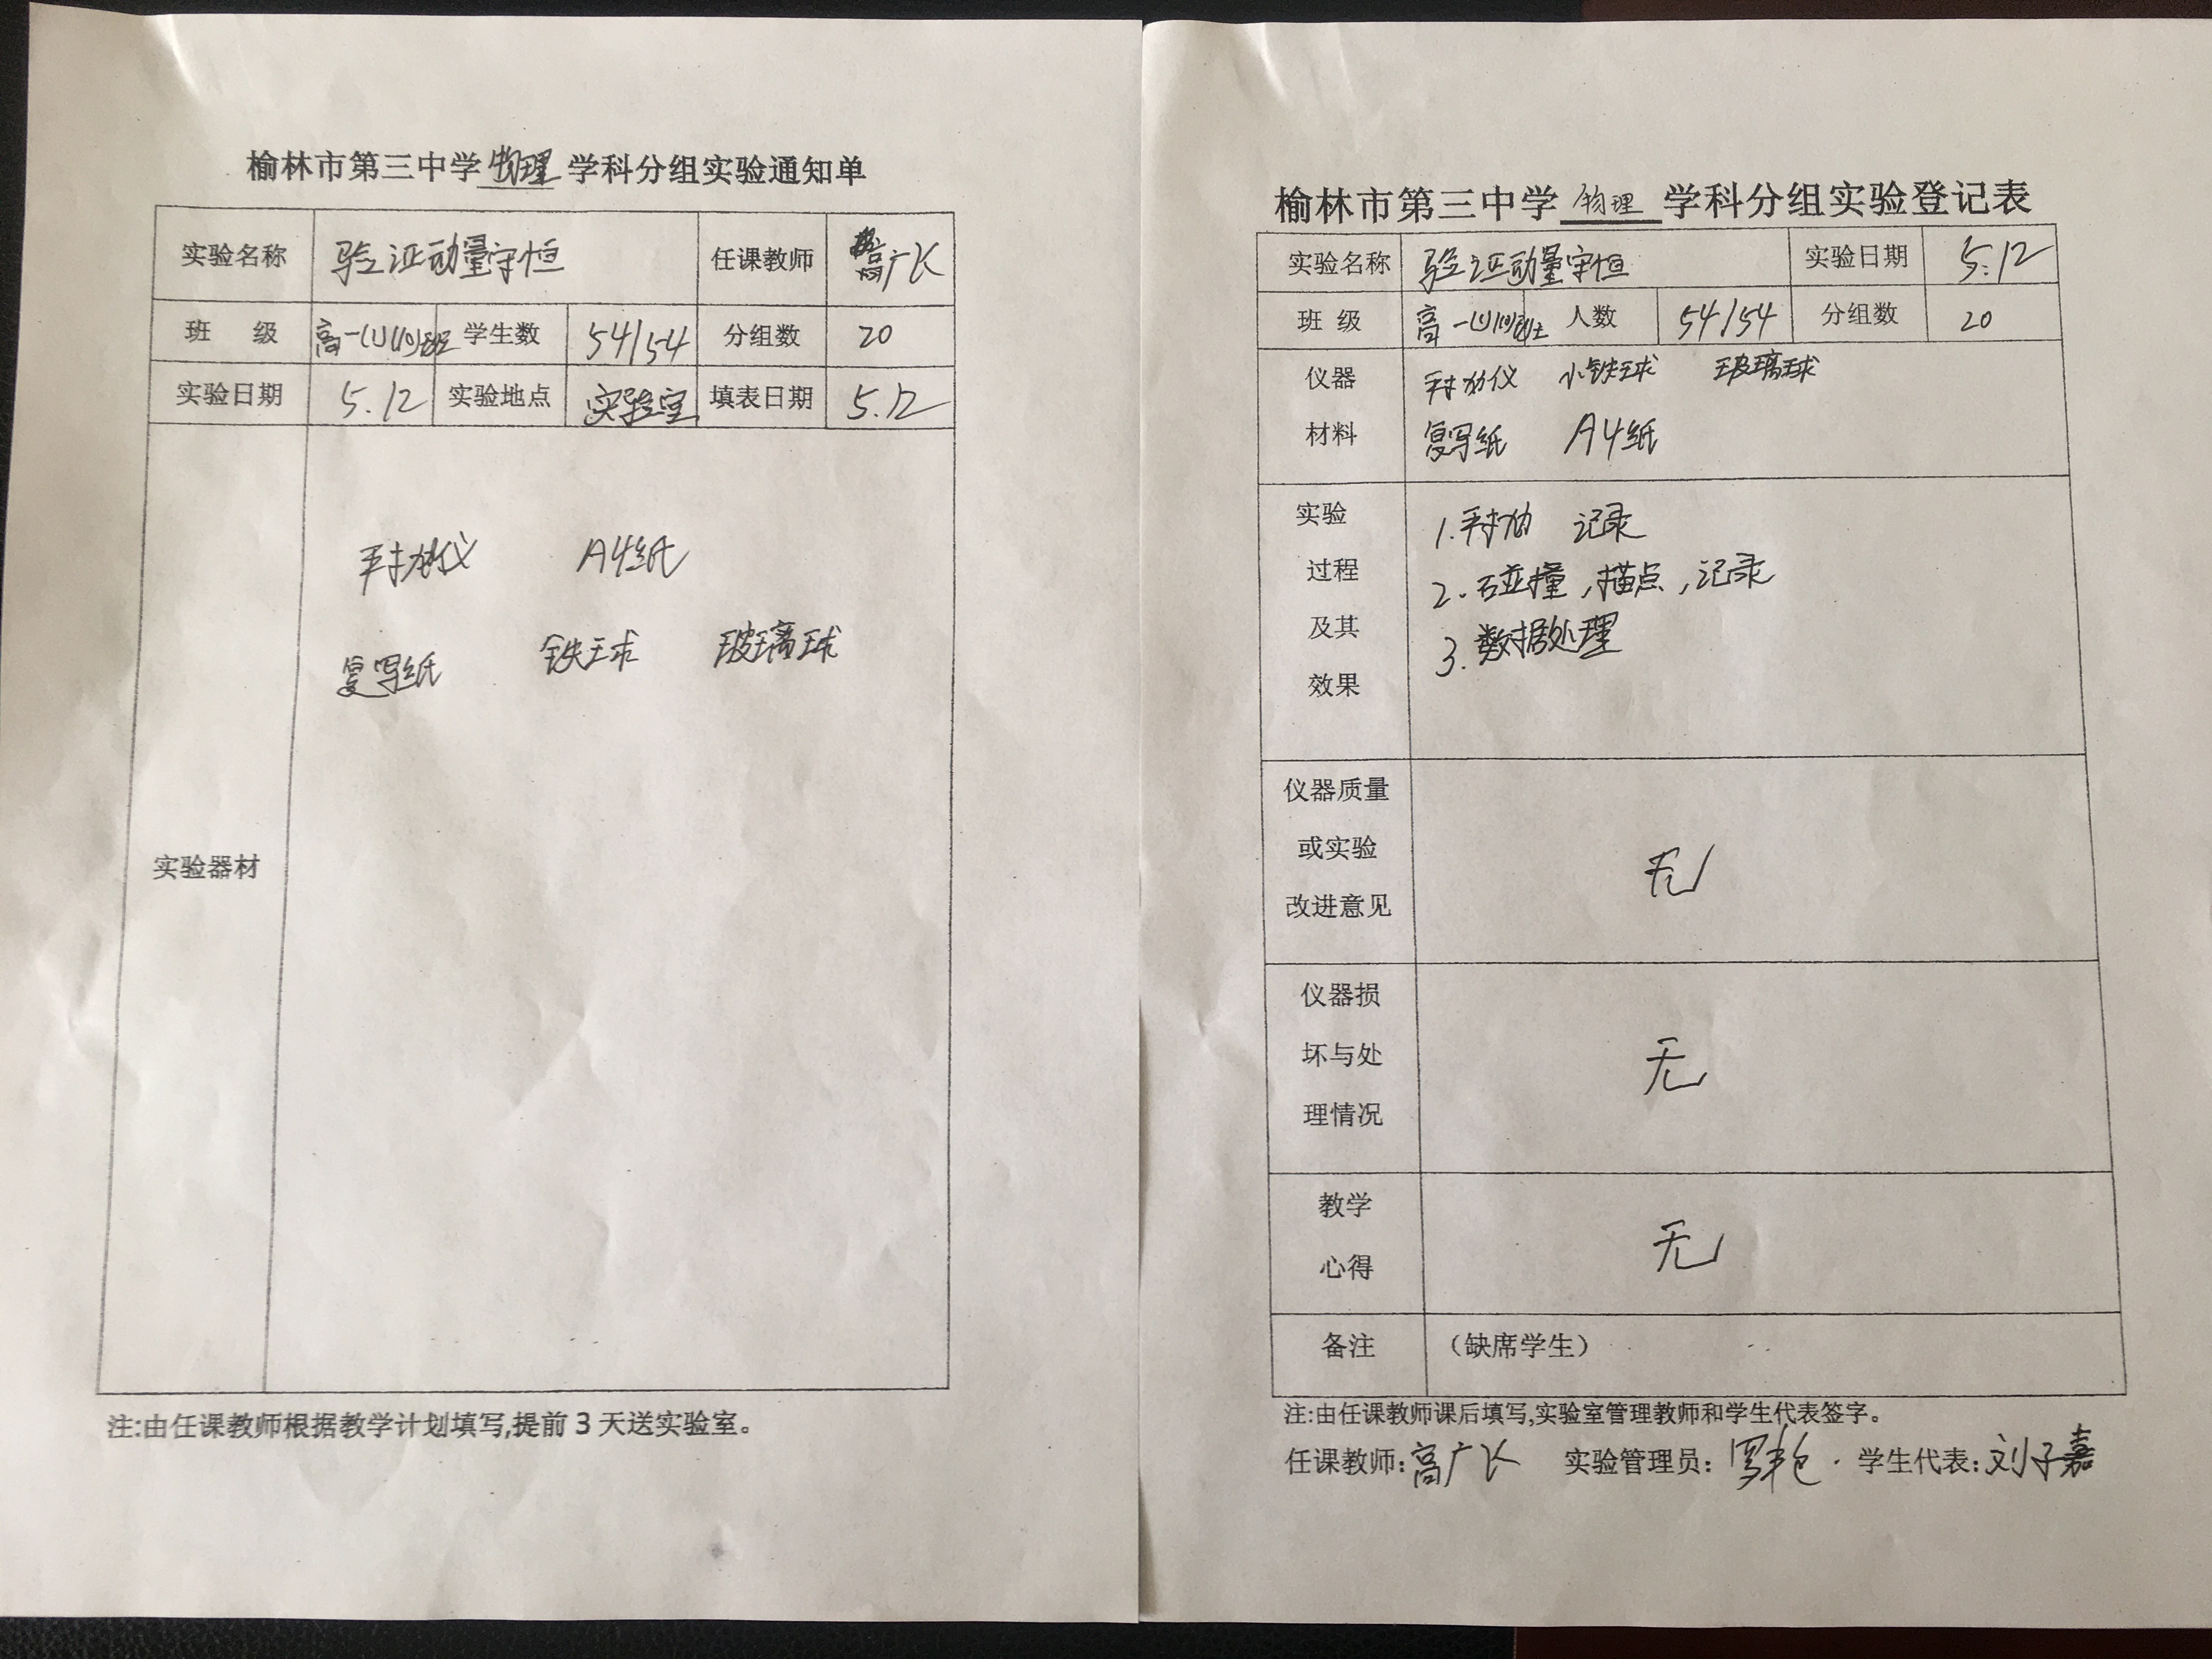 榆林市第三中学物理学科分组实验通知单
实验名称 验证动量守恒 任课教师 高广飞
班 级 高一(1)(10)班 学生数 54/54 分组数 20
实验日期 5.12 实验地点 实验室 填表日期 5.12
实验器材
平抛仪 A4纸
复写纸 铁球 玻璃球
注:由任课教师根据教学计划填写,提前3天送实验室。
榆林市第三中学物理学科分组实验登记表
实验名称 验证动量守恒 实验日期 5.12
班 级 高一(1)(10)班 人数 54/54 分组数 20
仪器 平抛仪 小铁球 玻璃球
材料 复写纸 A4纸
实验 1.平抛 记录
过程 2.碰撞,描点,记录
及其 3.数据处理
效果
仪器质量
或实验 无
改进意见
仪器损
坏与处 无
理情况
教学
心得 无
备注 (缺席学生)
注:由任课教师课后填写,实验室管理教师和学生代表签字。
任课教师:高广飞 实验管理员: 学生代表:刘子嘉